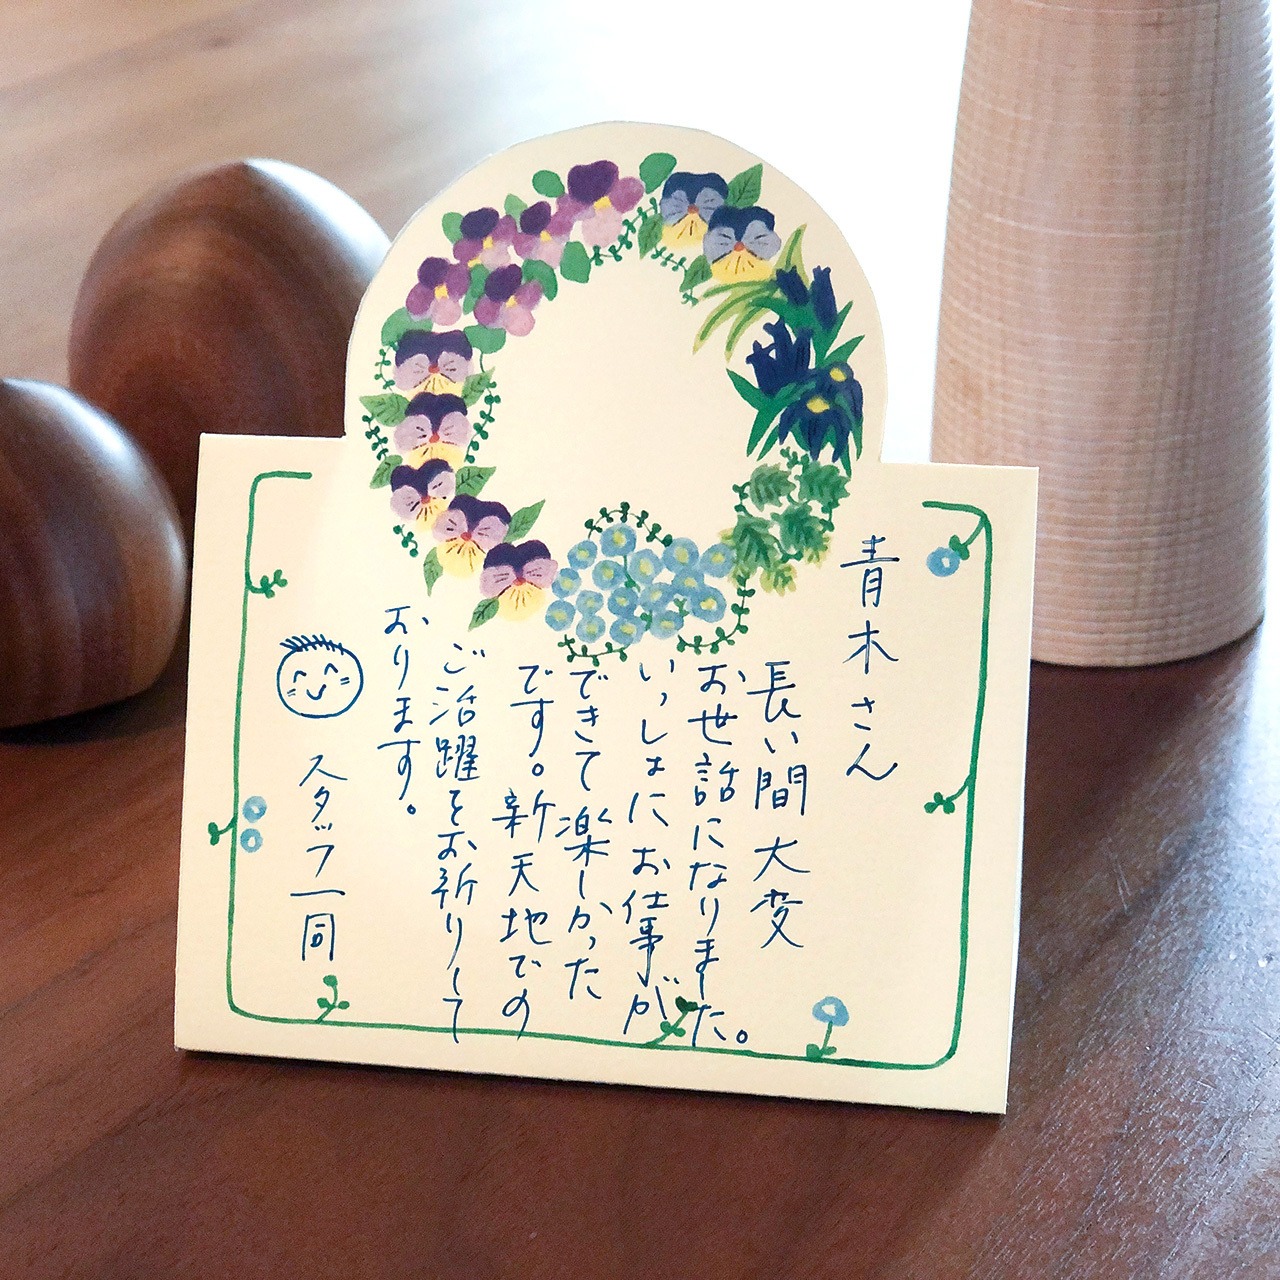 青木さん
長い間大変
お世話になりました。
いっしょにお仕事が
できて楽しかった
です。新天地での
ご活躍をお祈りして
おります。
スタッフ一同